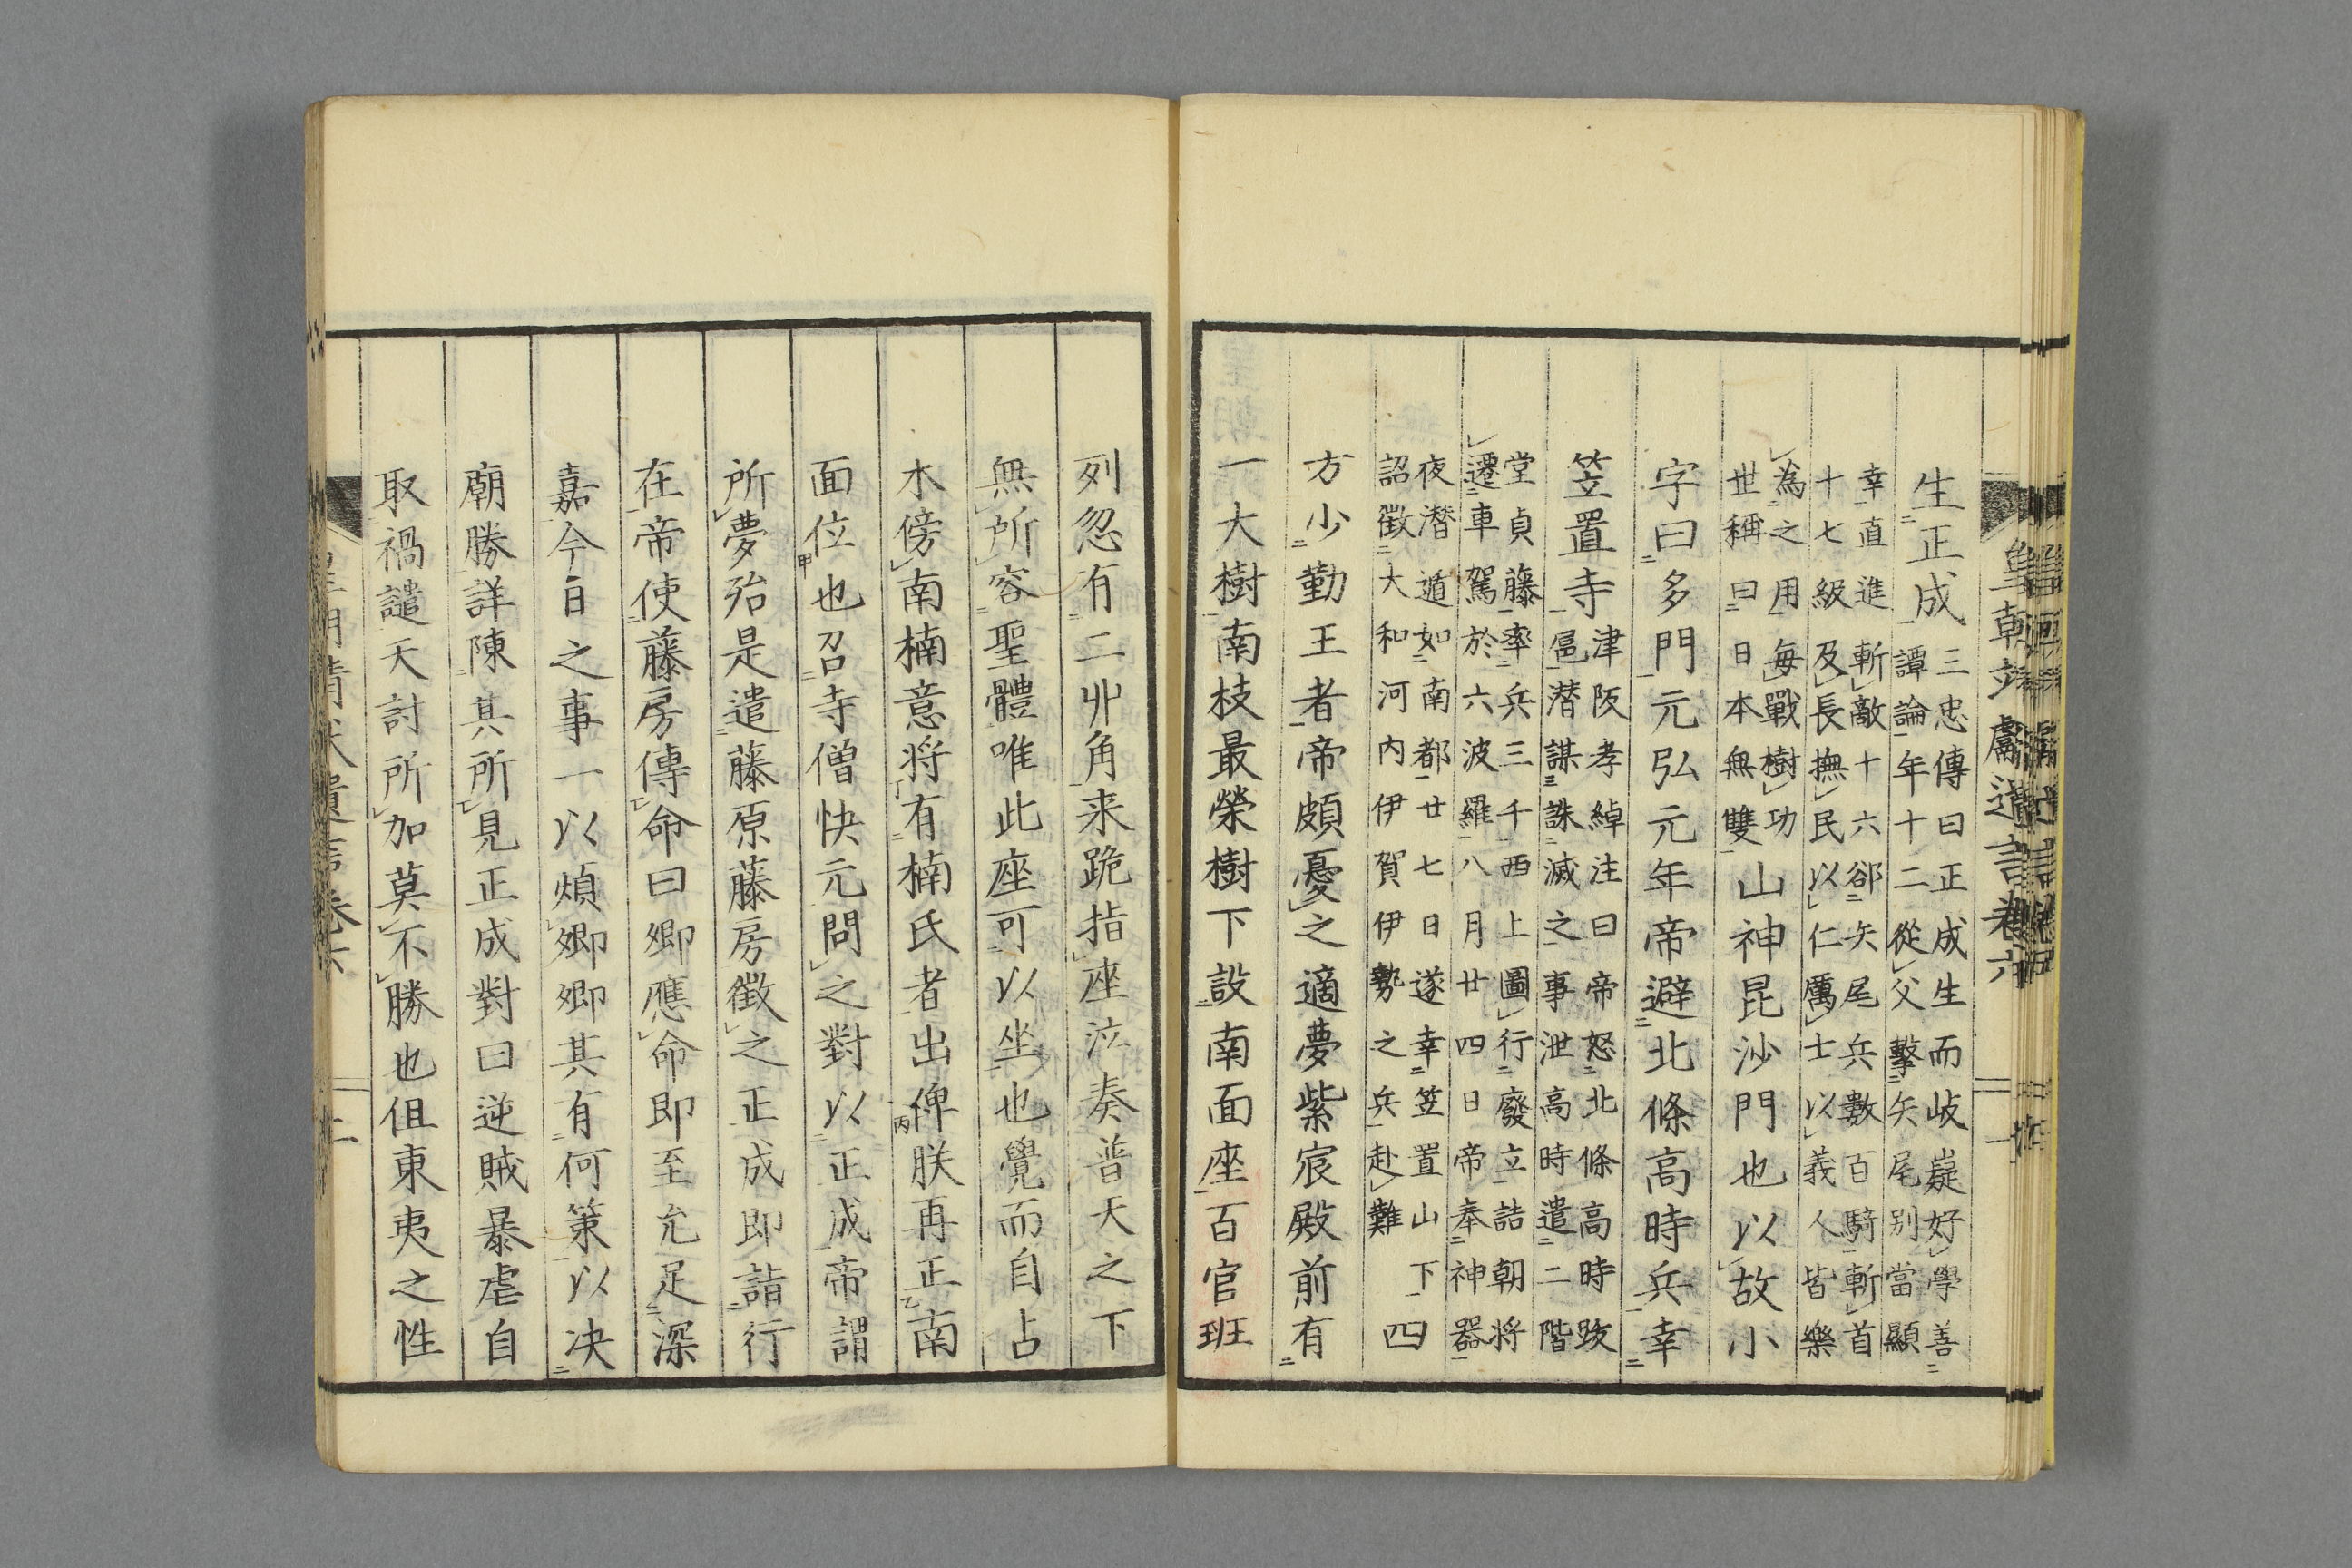 生正成
三忠傳曰正成生而岐嶷好學善
譚論年十二從父擊矢尾别當顯
幸直進斬敵十六卻矢尾兵數百騎斬首
十七級及長撫民以仁厲士以義人皆樂
為之用每戰樹功
世稱曰日本無雙
山神昆沙門也以故小
字曰多門元弘元年帝避北條高時兵幸
笠置寺
津阪孝綽注曰帝怒北條高時跋
扈潜謀誅滅之事泄高時遣二階
堂貞藤率兵三千西上圖行廢立詰朝将
遷車駕於六波羅八月廿四日帝奉神器
夜潜遁如南都廿七日遂幸笠置山下
詔徵大和河内伊賀伊勢之兵赴難
四
方少勤王者帝頗憂之適夢紫宸殿前有
一大樹南枝最榮樹下設南面座百官班
列忽有二丱角来跪指座泣奏普天之下
無所容聖體唯此座可以坐也覺而自占
木傍南楠意将有楠氏者出俾朕再正南
面位也召寺僧快元問之對以正成帝謂
所夢殆是遣藤原藤房徵之正成即詣行
在帝使藤房傳命曰卿應命即至允足深
嘉今日之事一以煩卿卿其有何策以决
廟勝詳陳其所見正成對曰逆賊暴虐自
取禍譴天討所加莫不勝也但東夷之性